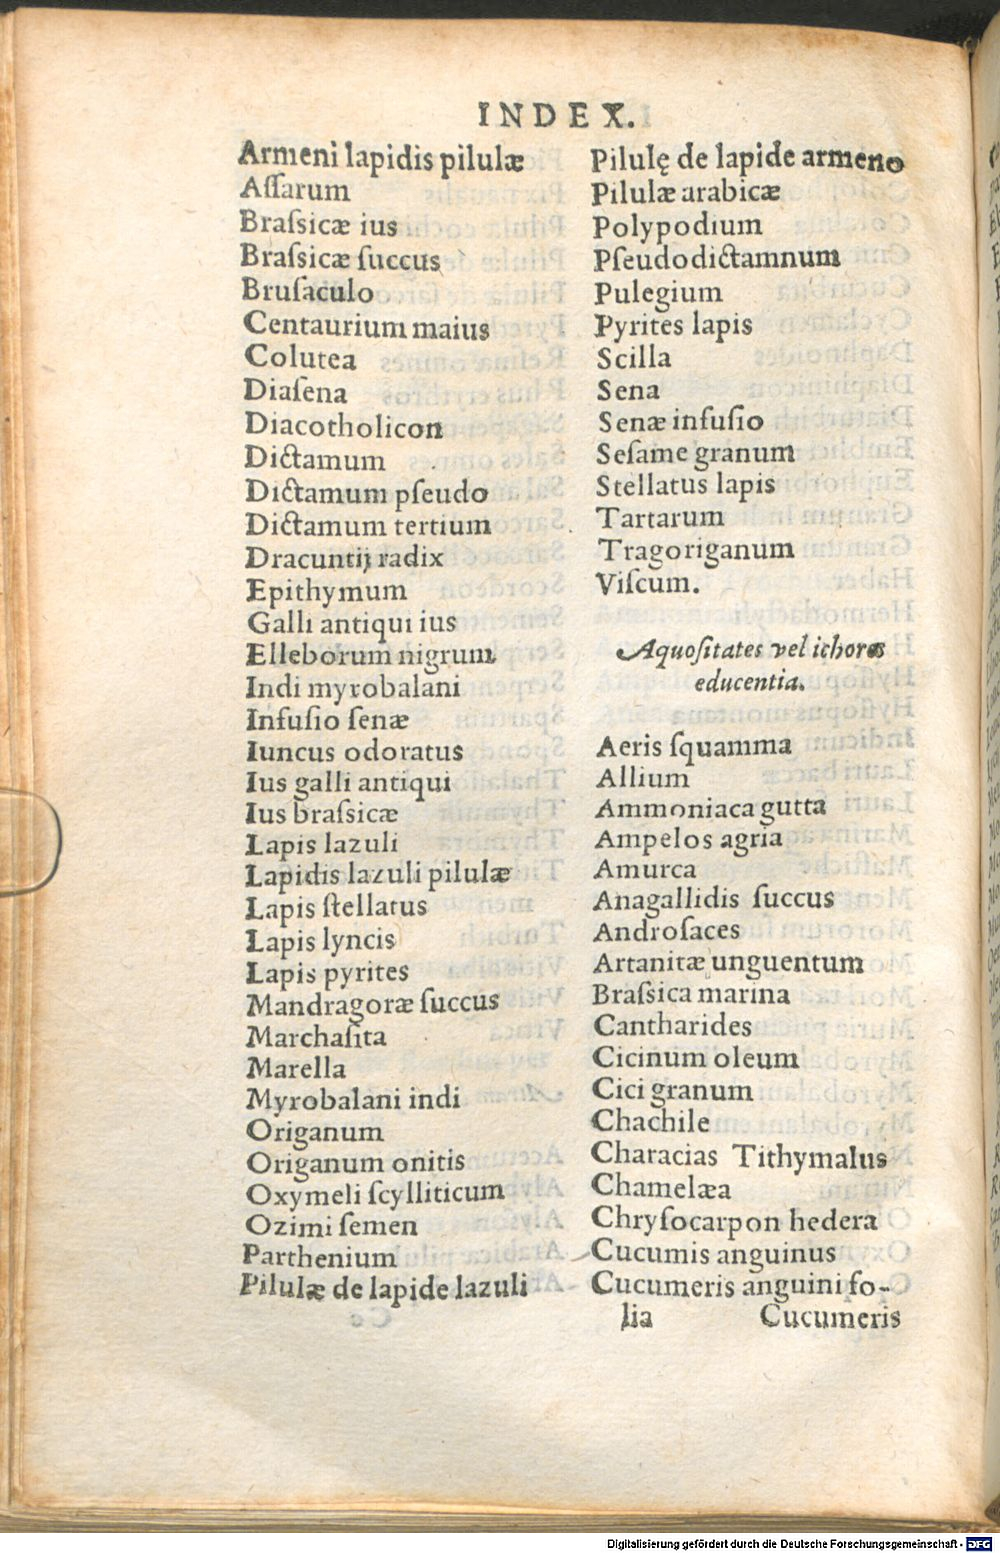 INDEX.
Armeni lapidis pilulæ
Aſſarum
Braſsicæ ius
Braſsicæ ſuccus
Bruſaculo
Centaurium maius
Colutea
Diaſena
Diacotholicon
Dictamum
Dictamum pſeudo
Dictamum tertium
Dracuntij radix
Epithymum
Galli antiqui ius
Elleborum nigrum
Indi myrobalani
Infuſio ſenæ
Iuncus odoratus
Ius galli antiqui
Ius braſsicæ
Lapis lazuli
Lapidis lazuli pilulæ
Lapis ſtellatus
Lapis lyncis
Lapis pyrites
Mandragoræ ſuccus
Marchaſita
Marella
Myrobalani indi
Origanum
Origanum onitis
Oxymeli ſcylliticum
Ozimi ſemen
Parthenium
Pilulæ de lapide lazuli
Pilulę de lapide armeno
Pilulæ arabicæ
Polypodium
Pſeudodictamnum
Pulegium
Pyrites lapis
Scilla
Sena
Senæ infuſio
Seſame granum
Stellatus lapis
Tartarum
Tragoriganum
Viſcum.
Aquoſitates vel ichores
educentia.
Aeris ſquamma
Allium
Ammoniaca gutta
Ampelos agria
Amurca
Anagallidis ſuccus
Androſaces
Artanitæ unguentum
Braſsica marina
Cantharides
Cicinum oleum
Cici granum
Chachile
Characias Tithymalus
Chamelæa
Chryſocarpon hedera
Cucumis anguinus
Cucumeris anguini fo-
lia Cucumeris
Digitalisierung gefördert durch die Deutsche Forschungsgemeinschaft - DFG